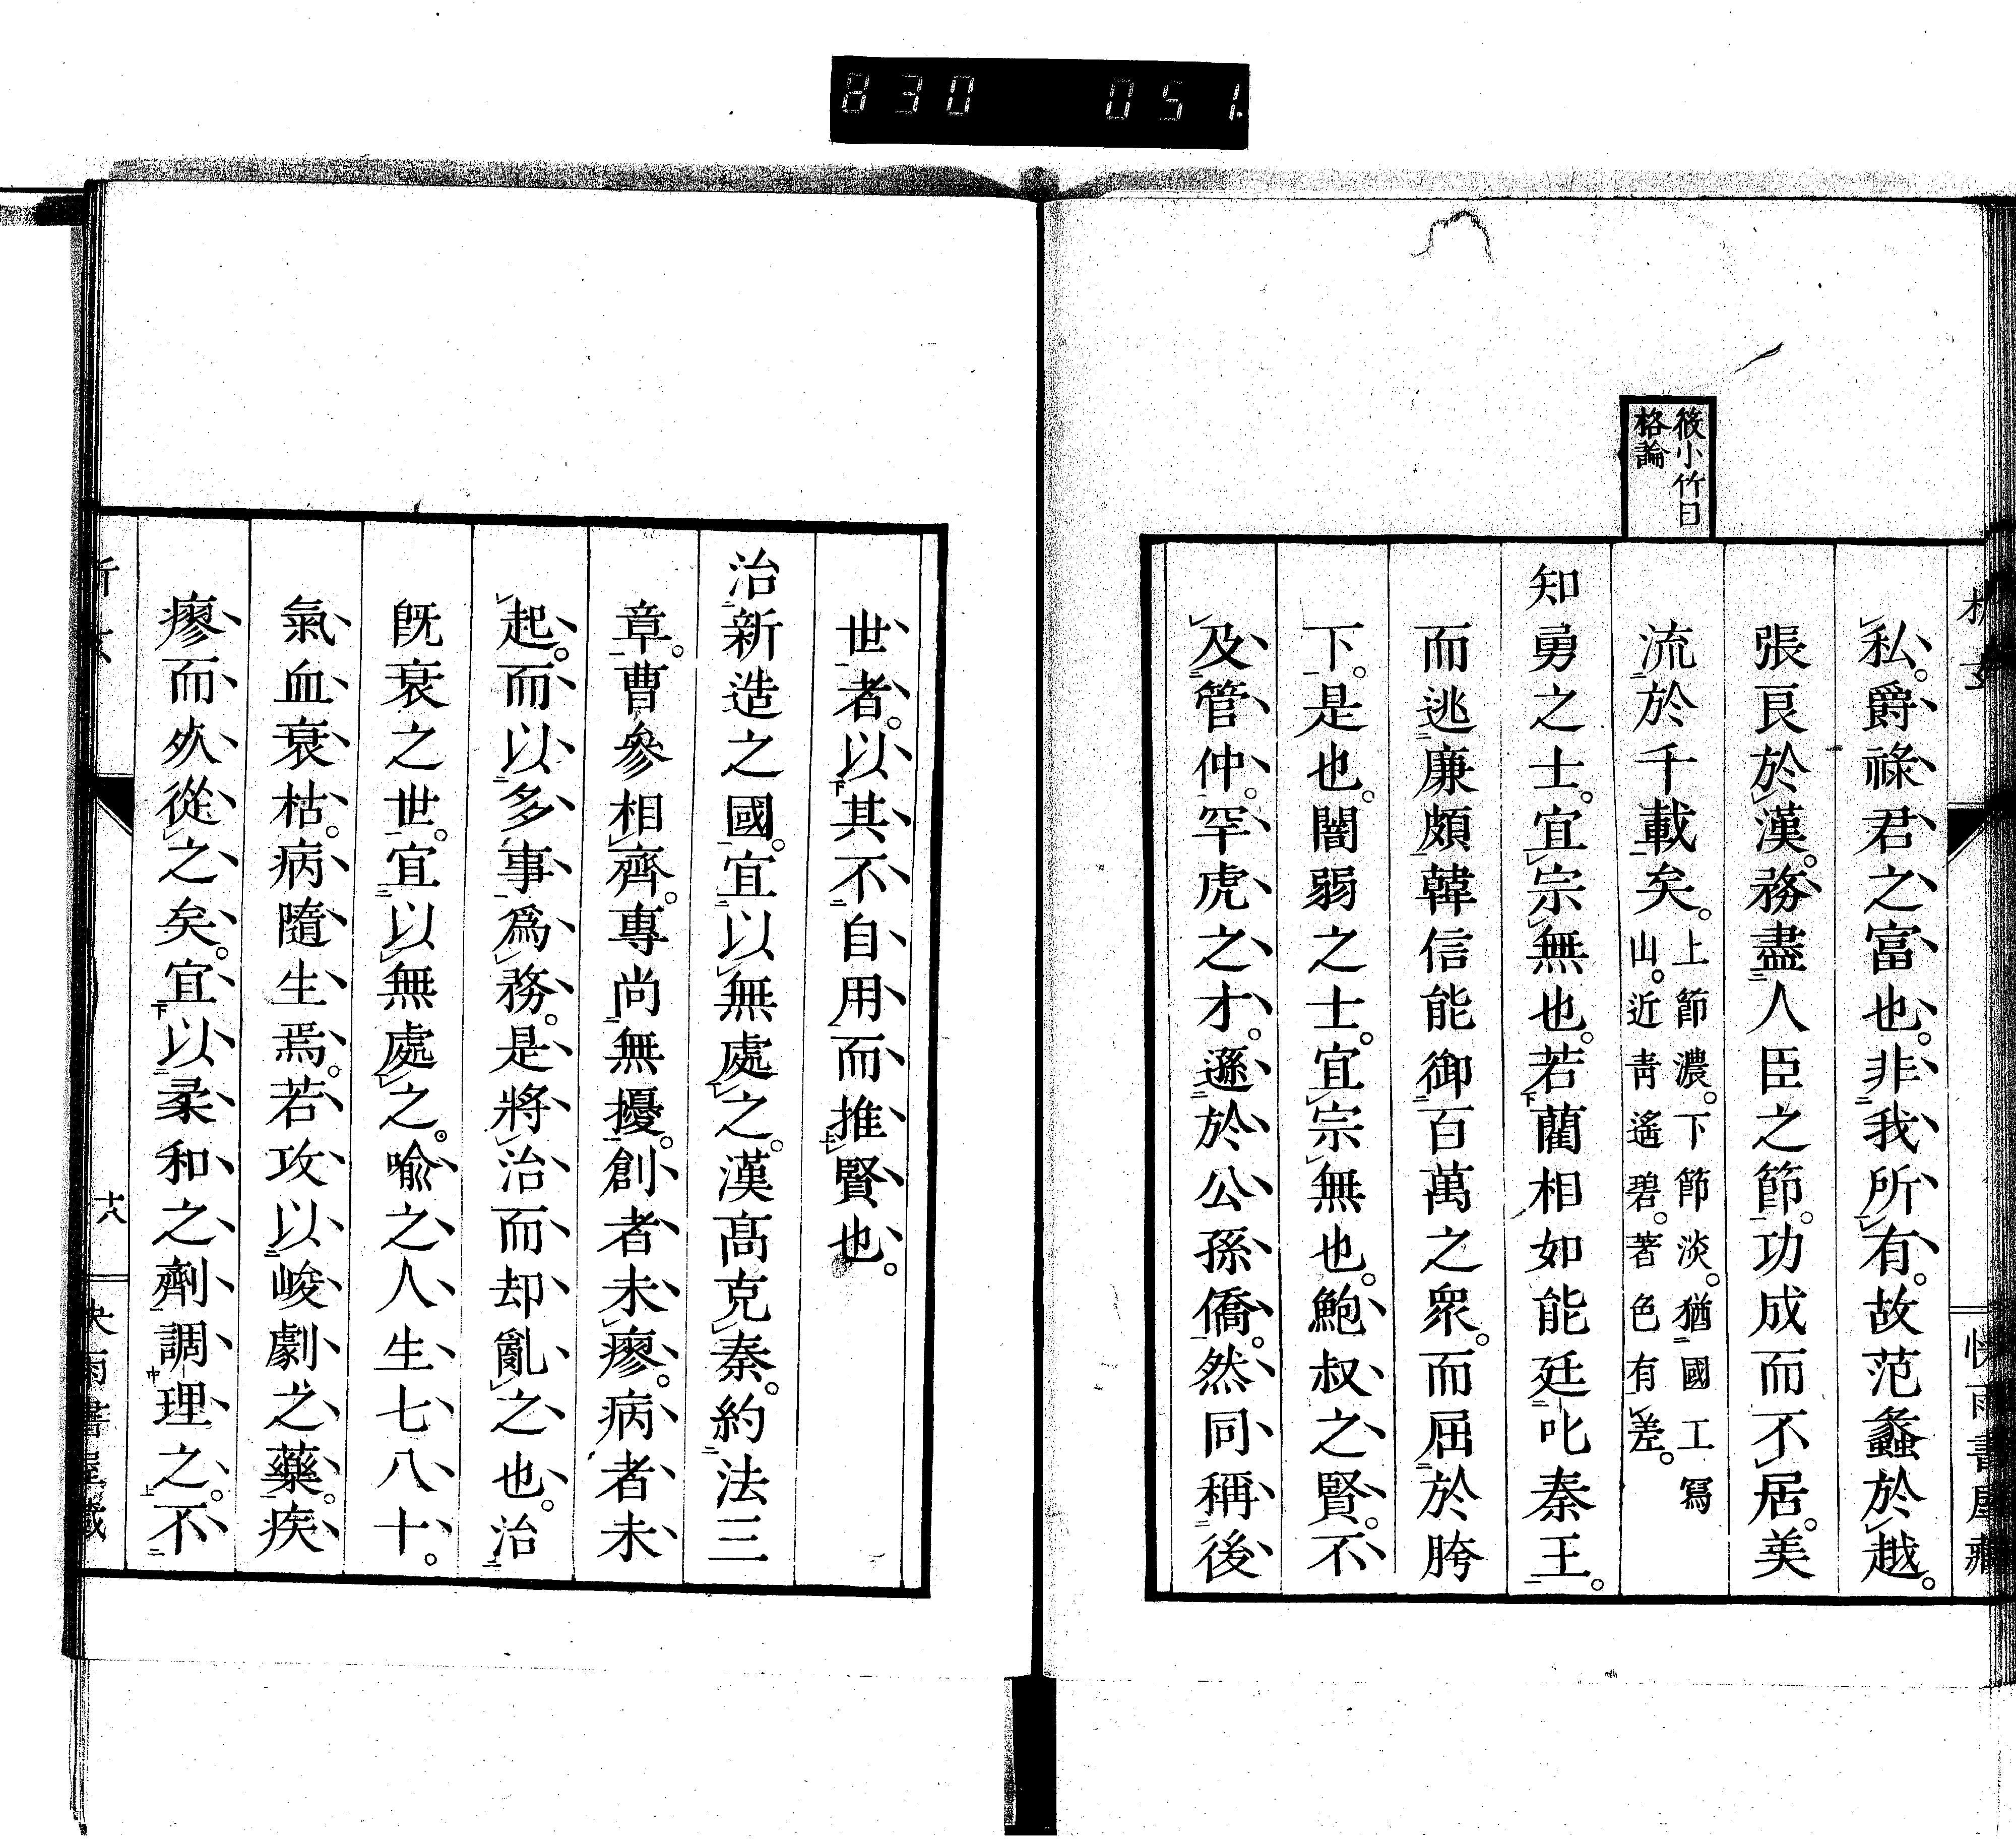 830 051
筱小竹曰
格論
私。爵祿君之富也。非我所有。故范蠡於越。
張良於漢。務盡人臣之節。功成而不居。美
流於千載矣。上節濃。下節淡。猶國工寫
山。近靑遙碧。著色有差。
知勇之士。宜宗無也。若藺相如能廷叱秦王。
而逃廉頗。韓信能御百萬之衆。而屈於胯
下。是也。闇弱之士。宜宗無也。鮑叔之賢。不
及管仲。罕虎之才。遜於公孫僑。然同稱後
快雨書屋藏
世者。以其不自用而推賢也。
治新造之國。宜以無處之。漢高克秦。約法三
章。曹參相齊。專尚無擾。創者未瘳。病者未
起。而以多事爲務。是將治而却亂之也。治
旣衰之世。宜以無處之。喩之人生七八十。
氣血衰枯。病隨生焉。若攻以峻劇之藥。疾
瘳而死從之矣。宜以柔和之劑調理之。不
十八